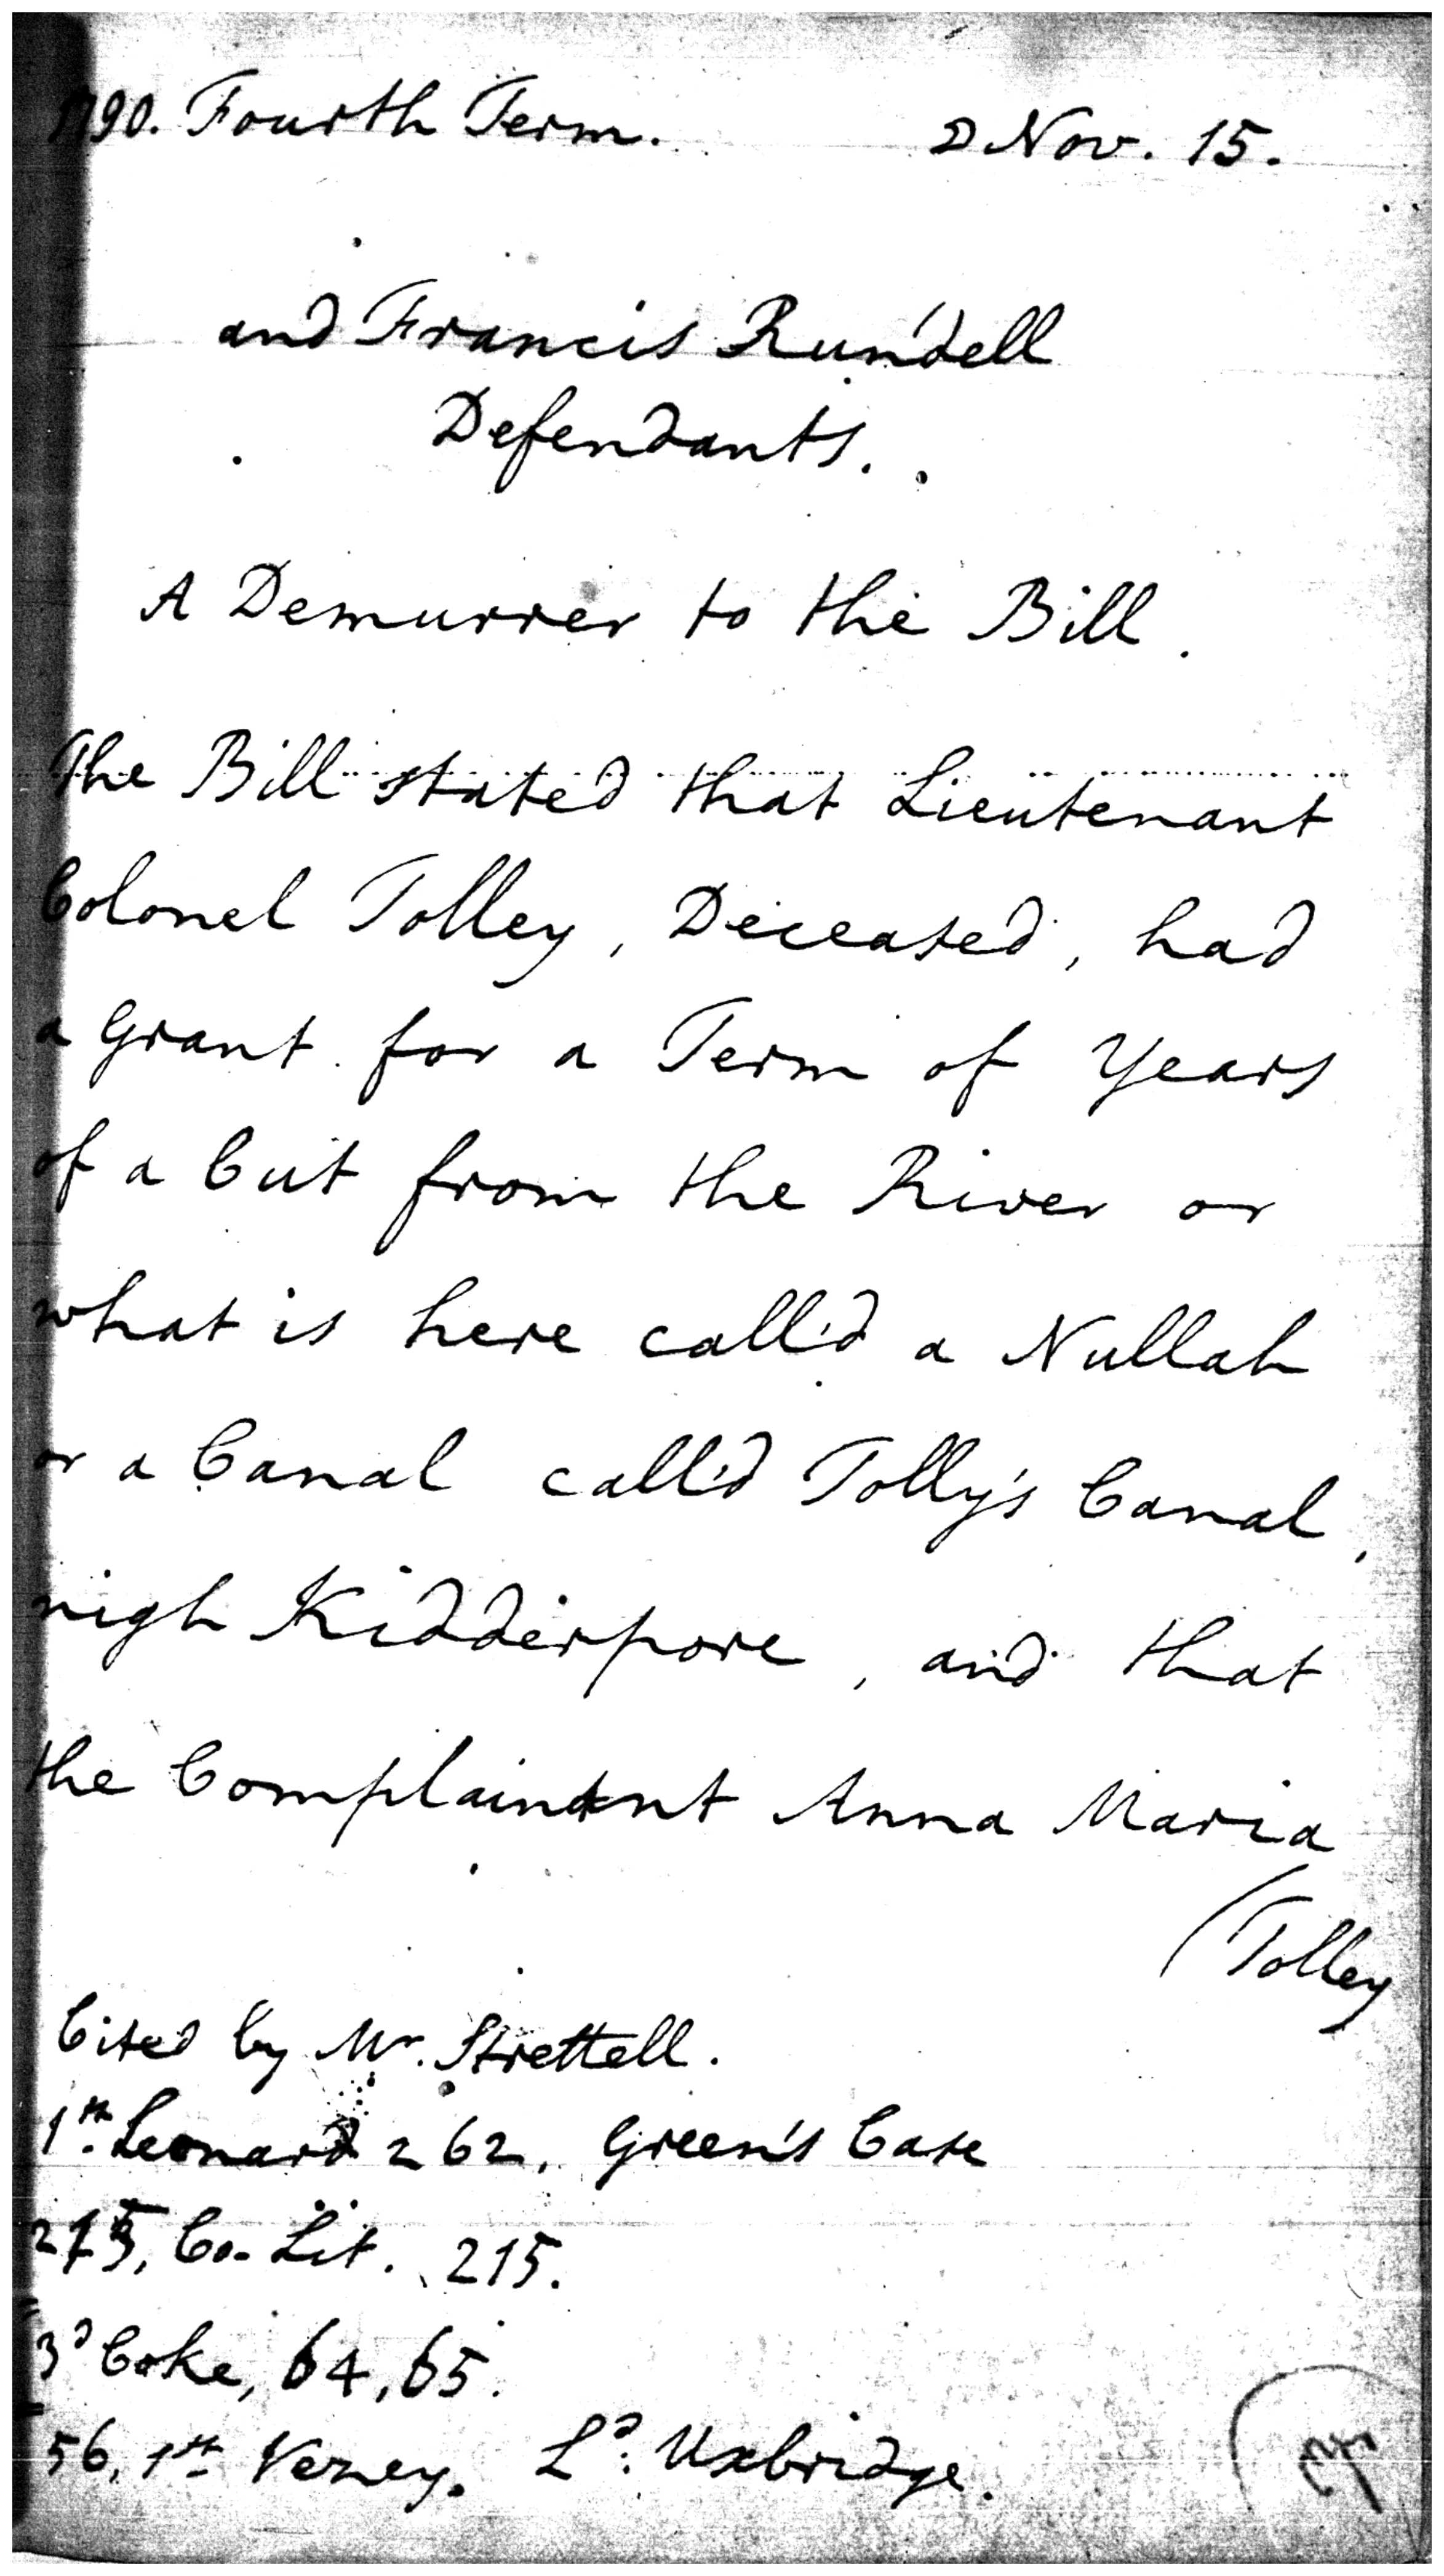 1790. Fourth Term. D Nov. 15.
and Francis Rundell
Defendants.
A Demurrer to the Bill.
The Bill stated that Lieutenant
Colonel Tolley, Deceased, had
a Grant for a Term of Years
of a Cut from the River or
what is here call'd a Nullah
or a Canal call'd Tolly's Canal,
nigh Kidderpore, and that
the Complainant Anna Maria
(Tolley
Cited by Mr. Strettell.
1st. Leonard 262, Green's Case
215, Co. Lit. 215.
3d Coke, 64, 65.
56, 1st Vezey. Ld: Uxbridge.